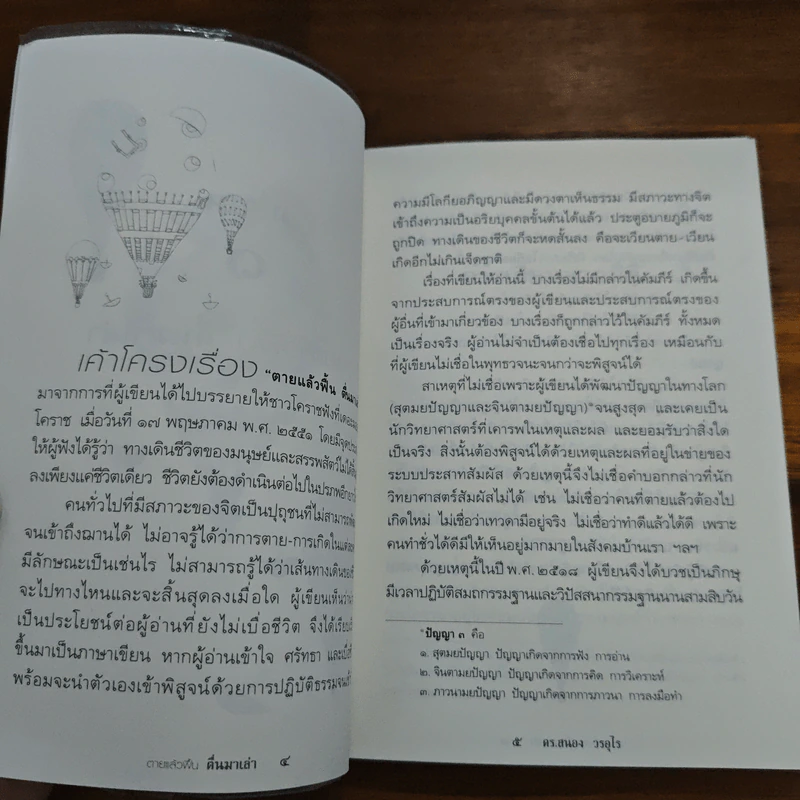 เค้าโครงเรื่อง "ตายแล้วฟื้น
มาจากการที่ผู้เขียนได้ไปบรรยายให้ชาวโคราชฟังที่
โคราช เมื่อวันที่ ๑๗ พฤษภาคม พ.ศ. ๒๕๕๑
ให้ผู้ฟังได้รู้ว่า ทางเดินชีวิตของมนุษย์และสรรพสัตว์
ลงเพียงแค่ชีวิตเดียว ชีวิตยังต้องดำเนินต่อไปในปรภพ
คนทั่วไปที่มีสภาวะของจิตเป็นปุถุชนที่ไม่สามารถ
จนเข้าถึงฌานได้ ไม่อาจรู้ได้ว่าการตาย-การเกิด
มีลักษณะเป็นเช่นไร ไม่สามารถรู้ได้ว่าเส้นทางเดินของ
จะไปทางไหนและจะสิ้นสุดลงเมื่อใด ผู้เขียนเห็นว่า
เป็นประโยชน์ต่อผู้อ่านที่ยังไม่เบื่อชีวิต จึงได้เรียบ
ขึ้นมาเป็นภาษาเขียน หากผู้อ่านเข้าใจ ศรัทธา
พร้อมจะนำตัวเองเข้าพิสูจน์ด้วยการปฏิบัติธรรม
ตายแล้วฟื้น ตื่นมาเล่า ๔
ความมีโลกียอภิญญาและมีดวงตาเห็นธรรม มีสภาวะทางจิต
เข้าถึงความเป็นอริยบุคคลขั้นต้นได้แล้ว ประตูอบายภูมิก็จะ
ถูกปิด ทางเดินของชีวิตก็จะหดสั้นลง คือจะเวียนตาย-เวียน
เกิดอีกไม่เกินเจ็ดชาติ
เรื่องที่เขียนให้อ่านนี้ บางเรื่องไม่มีกล่าวในคัมภีร์ เกิดขึ้น
จากประสบการณ์ตรงของผู้เขียนและประสบการณ์ตรงของ
ผู้อื่นที่เข้ามาเกี่ยวข้อง บางเรื่องก็ถูกกล่าวไว้ในคัมภีร์ ทั้งหมด
เป็นเรื่องจริง ผู้อ่านไม่จำเป็นต้องเชื่อไปทุกเรื่อง เหมือนกับ
ที่ผู้เขียนไม่เชื่อในพุทธวจนะจนกว่าจะพิสูจน์ได้
สาเหตุที่ไม่เชื่อเพราะผู้เขียนได้พัฒนาปัญญาในทางโลก
(สุตมยปัญญาและจินตามยปัญญา)*จนสูงสุด และเคยเป็น
นักวิทยาศาสตร์ที่เคารพในเหตุและผล และยอมรับว่าสิ่งใด
เป็นจริง สิ่งนั้นต้องพิสูจน์ได้ด้วยเหตุและผลที่อยู่ในข่ายของ
ระบบประสาทสัมผัส ด้วยเหตุนี้จึงไม่เชื่อคำบอกกล่าวที่นัก
วิทยาศาสตร์สัมผัสไม่ได้ เช่น ไม่เชื่อว่าคนที่ตายแล้วต้องไป
เกิดใหม่ ไม่เชื่อว่าเทวดามีอยู่จริง ไม่เชื่อว่าทำดีแล้วได้ดี เพราะ
คนทำชั่วได้ดีมีให้เห็นอยู่มากมายในสังคมบ้านเรา ฯลฯ
ด้วยเหตุนี้ในปี พ.ศ. ๒๕๑๘ ผู้เขียนจึงได้บวชเป็นภิกษุ
มีเวลาปฏิบัติสมถกรรมฐานและวิปัสสนากรรมฐานนานสามสิบวัน
*ปัญญา ๓ คือ
๑. สุตมยปัญญา ปัญญาเกิดจากการฟัง การอ่าน
๒. จินตามยปัญญา ปัญญาเกิดจากการคิด การวิเคราะห์
๓. ภาวนามยปัญญา ปัญญาเกิดจากการภาวนา การลงมือทำ
๕ ดร.สนอง วรอุไร